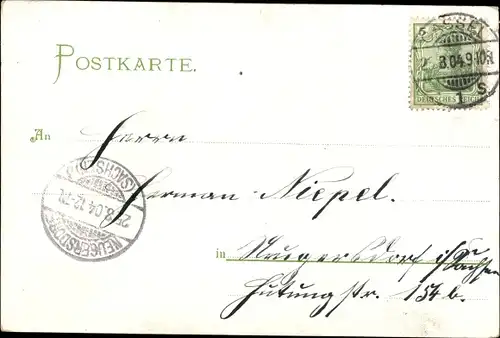 CASSEL
5
8.04.9-10
1 S.
DEUTSCHES REICH
POSTKARTE.
An Herrn
Herman Niepel.
NEUGERSDORF
25.8.04.12-
(SACHSEN)
in Neugersdorf i/Sachsen
Hutungstr. 154 b.